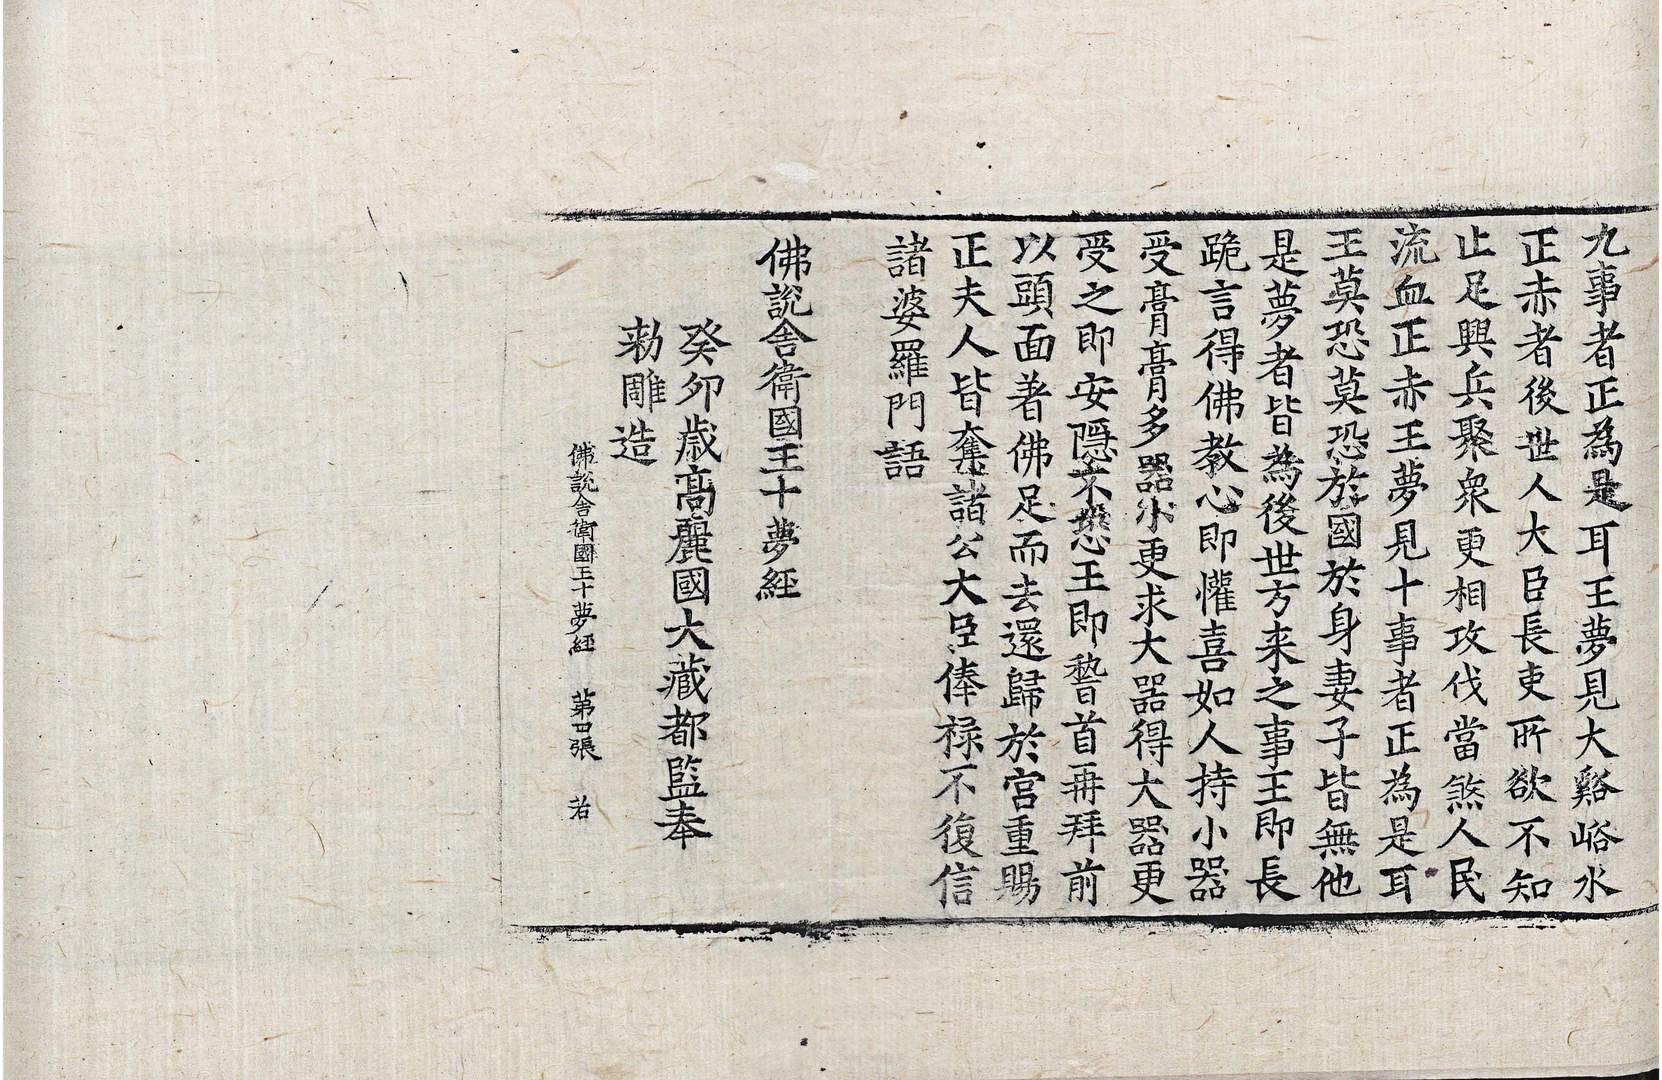 九事者正為是耳王夢見大谿峪水
正赤者後世人大臣長吏所欲不知
止足興兵聚衆更相攻伐當煞人民
流血正赤王夢見十事者正為是耳
王莫恐莫恐於國於身妻子皆無他
是夢者皆為後世方来之事王即長
跪言得佛教心即懽喜如人持小器
受膏膏多器小更求大器得大器更
受之即安隱不恐王即䭫首再拜前
以頭面著佛足而去還歸於宫重賜
正夫人皆奪諸公大臣俸禄不復信
諸婆羅門語
佛說舍衛國王十夢經
癸夘歳高麗國大藏都監奉
勑雕造
佛說舍衛國王十夢經 第四張 若